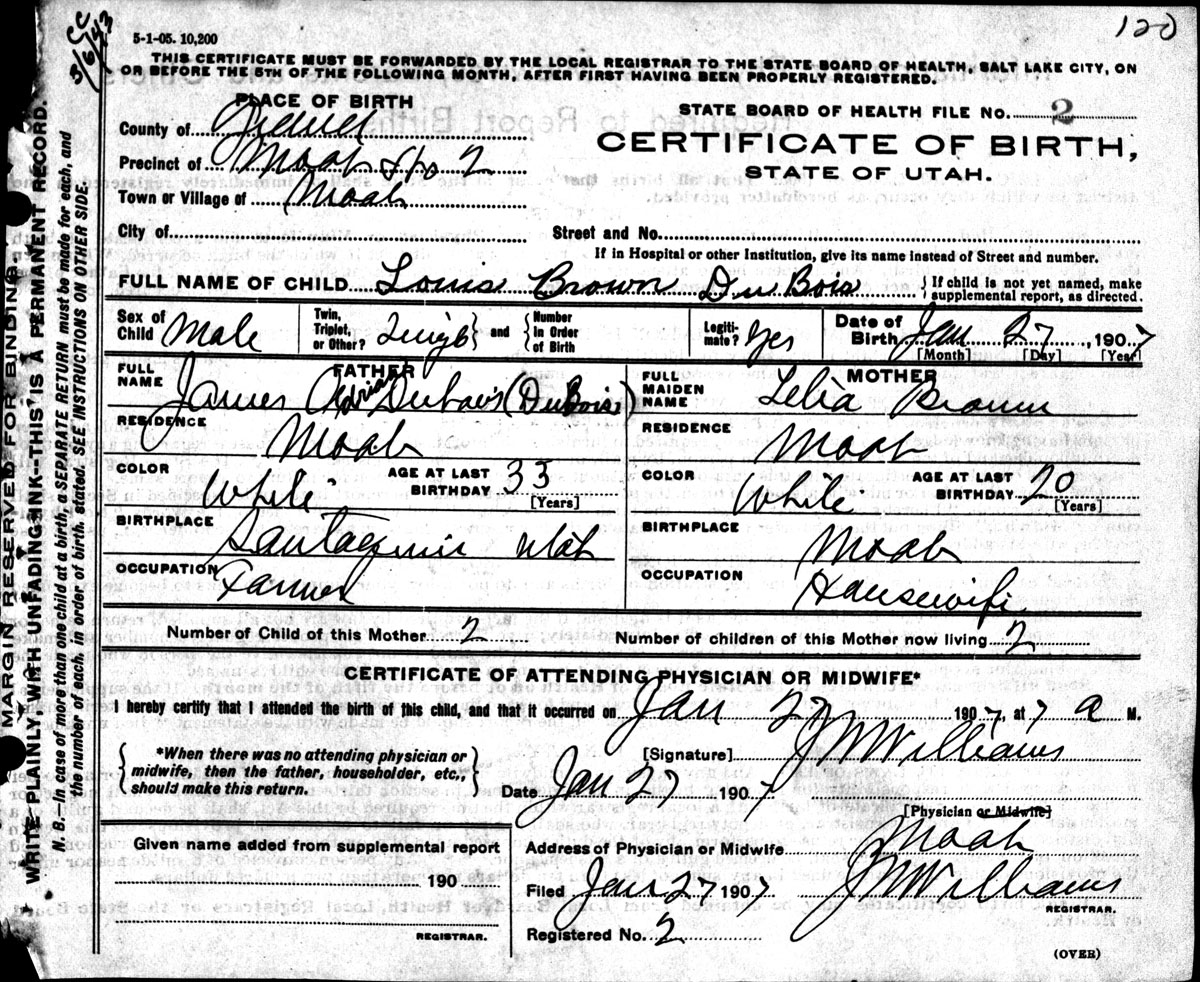 120
3/6/43
5-1-05. 10,200
THIS CERTIFICATE MUST BE FORWARDED BY THE LOCAL REGISTRAR TO THE STATE BOARD OF HEALTH, SALT LAKE CITY, ON
OR BEFORE THE 5TH OF THE FOLLOWING MONTH, AFTER FIRST HAVING BEEN PROPERLY REGISTERED.
PLACE OF BIRTH
STATE BOARD OF HEALTH FILE NO. 2
County of
CERTIFICATE OF BIRTH,
Precinct of Moab No 2
STATE OF UTAH.
Town or Village of Moab
City of Street and No.
If in Hospital or other Institution, give its name instead of Street and number.
FULL NAME OF CHILD Louis Brown DuBois {If child is not yet named, make supplemental report, as directed.
Sex of Child Male Twin, Triplet, or Other? Single } and { Number In Order of Birth Legitimate? Yes Date of Birth Jan 27, 1907
[Month] [Day] [Year]
FATHER MOTHER
FULL NAME James Adrian Dubois (DuBois) FULL MAIDEN NAME Lelia Brown
RESIDENCE Moab RESIDENCE Moab
COLOR White AGE AT LAST BIRTHDAY 33 [Years] COLOR White AGE AT LAST BIRTHDAY 20 [Years]
BIRTHPLACE Santaquin Utah BIRTHPLACE Moab
OCCUPATION Farmer OCCUPATION Housewife
Number of Child of this Mother 2 Number of children of this Mother now living 2
CERTIFICATE OF ATTENDING PHYSICIAN OR MIDWIFE*
I hereby certify that I attended the birth of this child, and that it occurred on Jan 27 1907, at 7 a M.
{*When there was no attending physician or midwife, then the father, householder, etc., should make this return.}
[Signature] J M Williams
Date Jan 27 1907
[Physician or Midwife]
Given name added from supplemental report
190
REGISTRAR.
Address of Physician or Midwife Moab
Filed Jan 27 1907 J M Williams
REGISTRAR.
Registered No. 2
(OVER)
MARGIN RESERVED FOR BINDING.
WRITE PLAINLY WITH UNFADING INK--THIS IS A PERMANENT RECORD.
N. B.—In case of more than one child at a birth, a SEPARATE RETURN must be made for each, and
the number of each, in order of birth, stated. SEE INSTRUCTIONS ON OTHER SIDE.